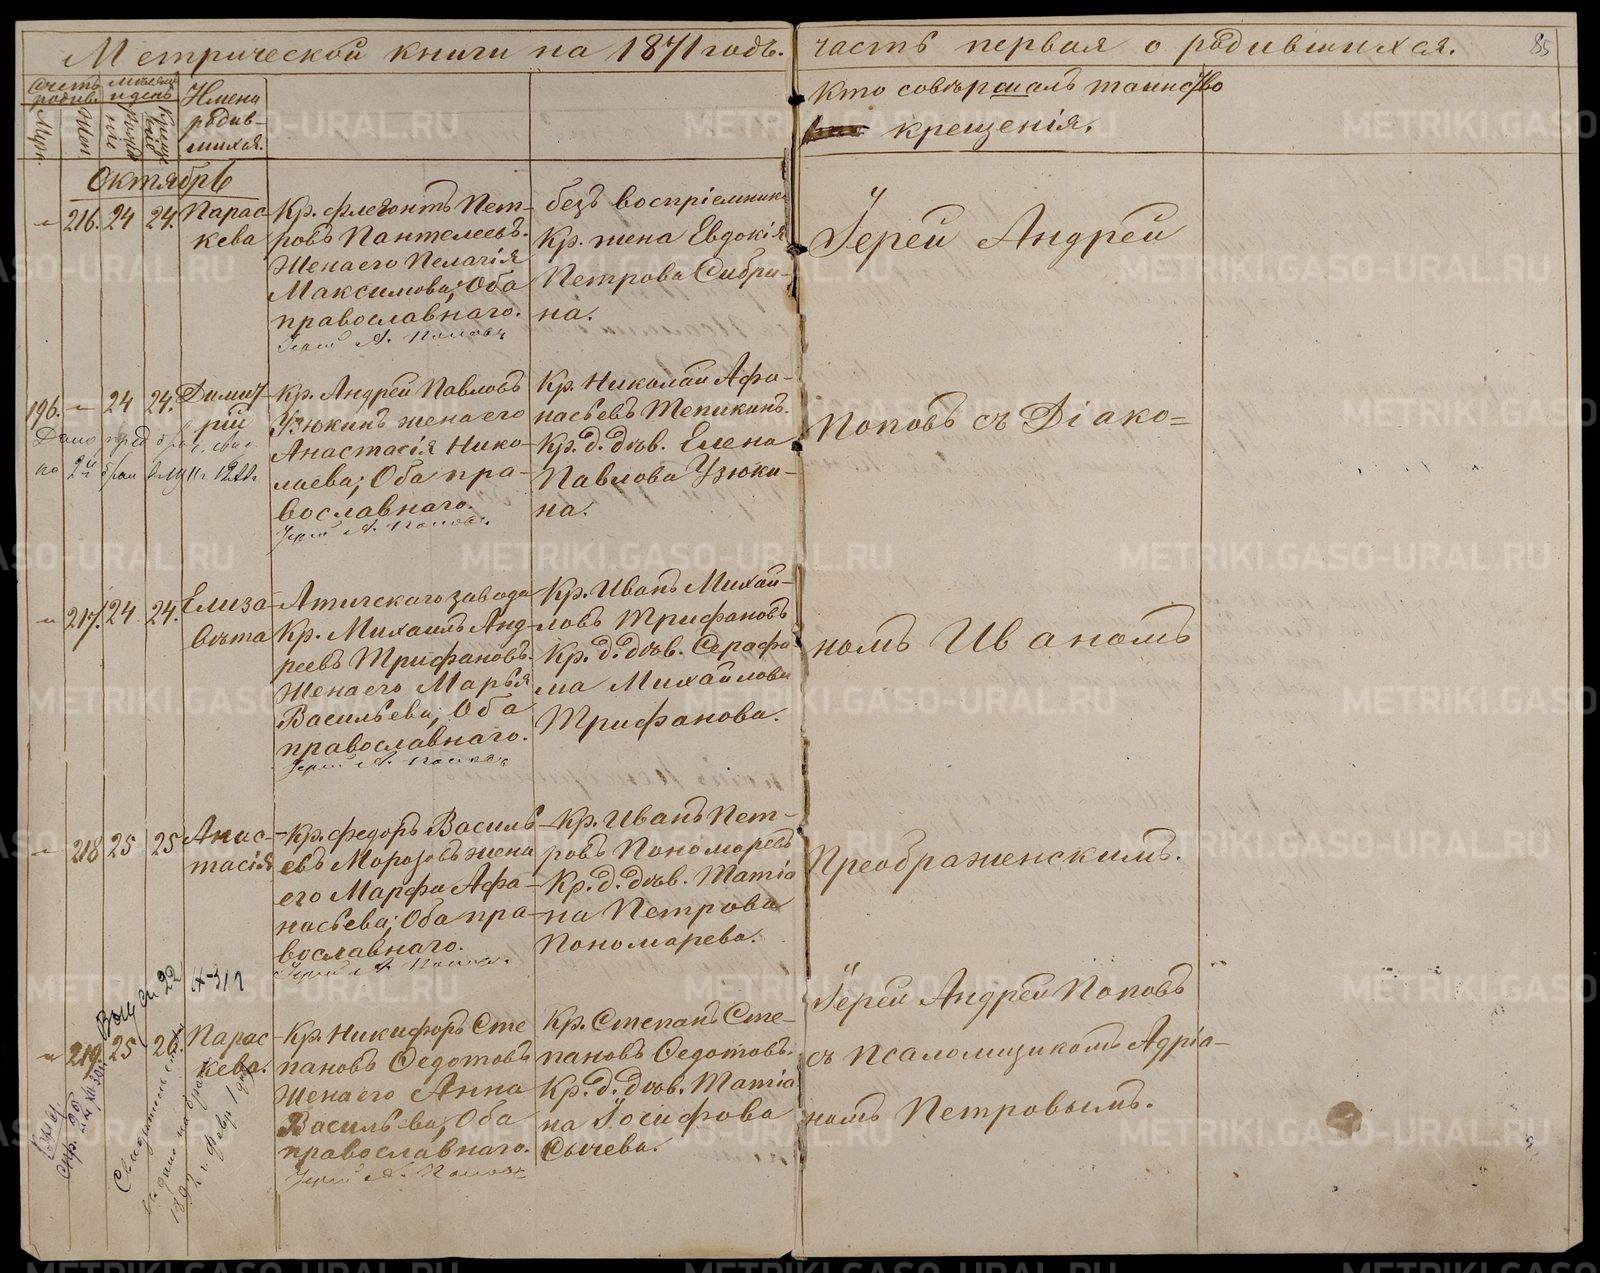 Метрической книги на 1871 годъ.
часть первая о родившихся.
85
Счетъ родив.
Муж.
Жен.
Мѣсяцъ и день
Рожденія
Крещенія
Имена родив-
шихся.
Кто совершалъ таинство
крещенія.
Октябрь
216. 24 24. Парас-
кева
Кр. Флегонтъ Пет-
ровъ Пантелеевъ.
Жена его Пелагія
Максимова, Оба
православнаго.
Іерей А. Поповъ
безъ воспріемника
Кр. жена Евдокія
Петрова Сибри-
на.
196. 24 24. Димит-
рій
Кр. Андрей Павловъ
Узюкинъ жена его
Анастасія Нико-
лаева; Оба пра-
вославнаго.
Іерей А. Поповъ
Кр. Николай Афа-
насьевъ Тепикинъ.
Кр. д. дѣв. Елена
Павлова Узюки-
на.
217. 24 24. Елиза-
вѣта
Атигскаго завода
Кр. Михаилъ Анд-
реевъ Трифановъ.
Жена его Марья
Васильева, Оба
православнаго.
Іерей А. Поповъ
Кр. Иванъ Михай-
ловъ Трифановъ
Кр. д. дѣв. Серафи-
ма Михайлова
Трифанова.
218 25 25 Анас-
тасія
Кр. Федоръ Василь-
евъ Морозовъ жена
его Марфа Афа-
насьева; Оба пра-
вославнаго.
Іерей А. Поповъ
Кр. Иванъ Пет-
ровъ Пономаревъ
Кр. д. дѣв. Татіа-
на Петрова
Пономарева.
219. 25 26. Парас-
кева.
Кр. Никифоръ Сте-
пановъ Ѳедотовъ
жена его Анна
Васильева, Оба
православнаго.
Іерей А. Поповъ
Кр. Степанъ Сте-
пановъ Ѳедотовъ.
Кр. д. дѣв. Татіа-
на Іосифова
Сычева.
Іерей Андрей
Поповъ съ Діако=
номъ Иваномъ
Преображенскимъ.
Іерей Андрей Поповъ
съ псаломщикомъ Адріа-
номъ Петровымъ.
METRIKI.GASO-URAL.RU